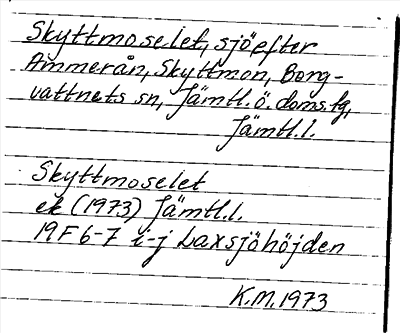 Skyttmoselet, sjö efter
Ammerån, Skyttmon, Borg-
vattnets sn, Jämtl. ö. doms.tg,
Jämtl.l.
Skyttmoselet
ek (1973) Jämtl.l.
19F 6-7 i-j Laxsjöhöjden
K.M. 1973